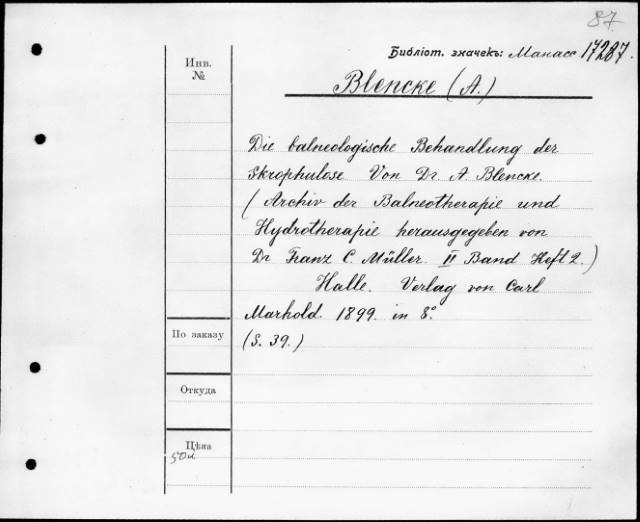 87
Библіот. значекъ: Манасс 17287.
Инв.
№
Blencke (A.)
Die balneologische Behandlung der
Skrophulose Von Dr. A. Blencke.
(Archiv der Balneotherapie und
Hydrotherapie herausgegeben von
Dr Franz C. Müller. II Band Heft 2.)
Halle. Verlag von Carl
Marhold. 1899. in 8°
По заказу
(S. 39.)
Откуда
Цѣна